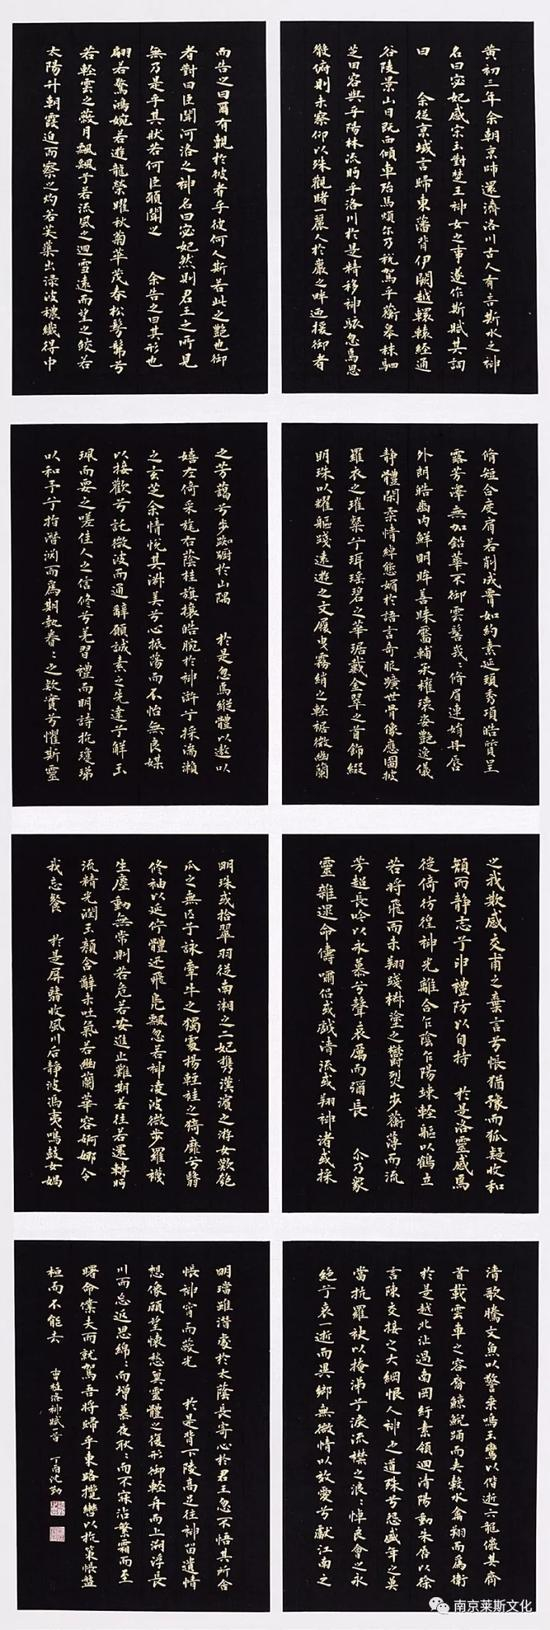 黄初三年余朝京師還濟洛川古人有言斯水之神
名曰宓妃感宋玉對楚王神女之事遂作斯賦其詞
曰 余從京域言歸東藩背伊闕越轘轅經通
谷陵景山日既西傾車殆馬煩尔乃税駕乎蘅皋秣駟
芝田容與乎陽林流眄乎洛川於是精移神駭忽焉思
散俯則未察仰以殊觀睹一麗人於巖之畔迺援御者
而告之曰爾有覿於彼者乎彼何人斯若此之艷也御
者對曰臣聞河洛之神名曰宓妃然則君王之所見
無乃是乎其狀若何臣願聞之 余告之曰其形也
翩若驚鴻婉若遊龍榮曜秋菊華茂春松髣髴兮
若輕雲之蔽月飄颻兮若流風之迴雪遠而望之皎若
太陽升朝霞迫而察之灼若芙蕖出淥波穠纖得中
脩短合度肩若削成腰如約素延頸秀項皓質呈
露芳澤無加鉛華不御雲髻峩〻脩眉連娟丹脣
外朗皓齒内鮮明眸善睞靨輔承權瓌姿艷逸儀
静體閑柔情綽態媚於語言奇服曠世骨像應圖披
羅衣之璀粲兮珥瑶碧之華琚戴金翠之首飾綴
明珠以耀軀踐遠遊之文履曳霧綃之輕裾微幽蘭
之芳藹兮步踟躕於山隅 於是忽焉縱體以遨以
嬉左倚采旄右蔭桂旗攘皓腕於神滸兮採湍瀨
之玄芝余情悦其淑美兮心振蕩而不怡無良媒
以接歡兮託微波而通辭願誠素之先達兮解玉
珮而要之嗟佳人之信修兮羌習禮而明詩抗瓊珶
以和予兮指潛淵而爲期執眷〻之款實兮懼斯靈
之我欺感交甫之棄言兮悵猶豫而狐疑收和
顔而静志兮申禮防以自持 於是洛靈感焉
徙倚彷徨神光離合乍陰乍陽竦輕軀以鶴立
若將飛而未翔踐椒塗之郁烈步蘅薄而流
芳超長吟以永慕兮聲哀厲而彌長 尔乃衆
靈雜遝命儔嘯侣或戲清流或翔神渚或採
明珠或拾翠羽從南湘之二妃攜漢濱之游女歎匏
瓜之無匹兮詠牽牛之獨處揚輕袿之猗靡兮翳
修袖以延佇體迅飛鳧飄忽若神凌波微步羅襪
生塵動無常則若危若安進止難期若往若還轉眄
流精光潤玉顔含辭未吐氣若幽蘭華容婀娜令
我忘餐 於是屏翳收風川后静波馮夷鳴鼓女媧
清歌騰文魚以警乘鳴玉鸞以偕逝六龍儼其齊
首載雲車之容裔鯨鯢踊而夹轂水禽翔而爲衛
於是越北沚過南岡紆素領迴清陽動朱唇以徐
言陳交接之大綱恨人神之道殊兮怨盛年之莫
當抗羅袂以掩涕兮淚流襟之浪〻悼良會之永
絶兮哀一逝而異鄉無微情以效愛兮獻江南之
明璫雖潛處於太陰長寄心於君王忽不悟其所舍
悵神宵而蔽光 於是背下陵高足往神留遺情
想像顧望懷愁冀靈體之復形御輕舟而上溯浮長
川而忘返思綿〻而增慕夜耿〻而不寐沾繁霜而至
曙命僕夫而就駕吾將歸乎東路攬騑轡以抗策悵盤
桓而不能去 曹植洛神賦 丁酉
南京莱斯文化